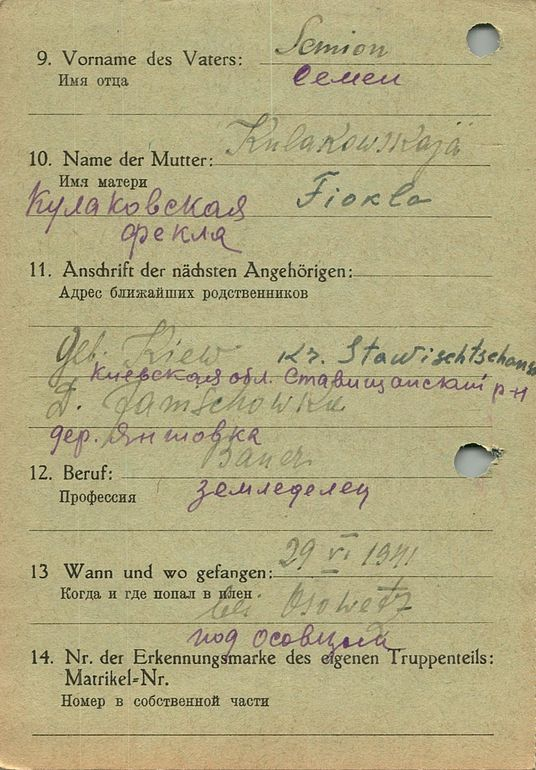 Semion
9. Vorname des Vaters:
Имя отца
Семен
Kulakowskaja
10. Name der Mutter:
Имя матери
Fiokla
Кулаковская
Фекла
11. Anschrift der nächsten Angehörigen:
Адрес ближайших родственников
Geb. Kiew Kr. Stawischtschansk
Киевская обл. Ставищанский р-н
D. Jamschowka
дер. Яншовка
Bauer
12. Beruf:
Профессия
земледелец
29 VI 1941
13 Wann und wo gefangen:
Когда и где попал в плен
bei Osowetz
под Осовцом
14. Nr. der Erkennungsmarke des eigenen Truppenteils:
Matrikel-Nr.
Номер в собственной части